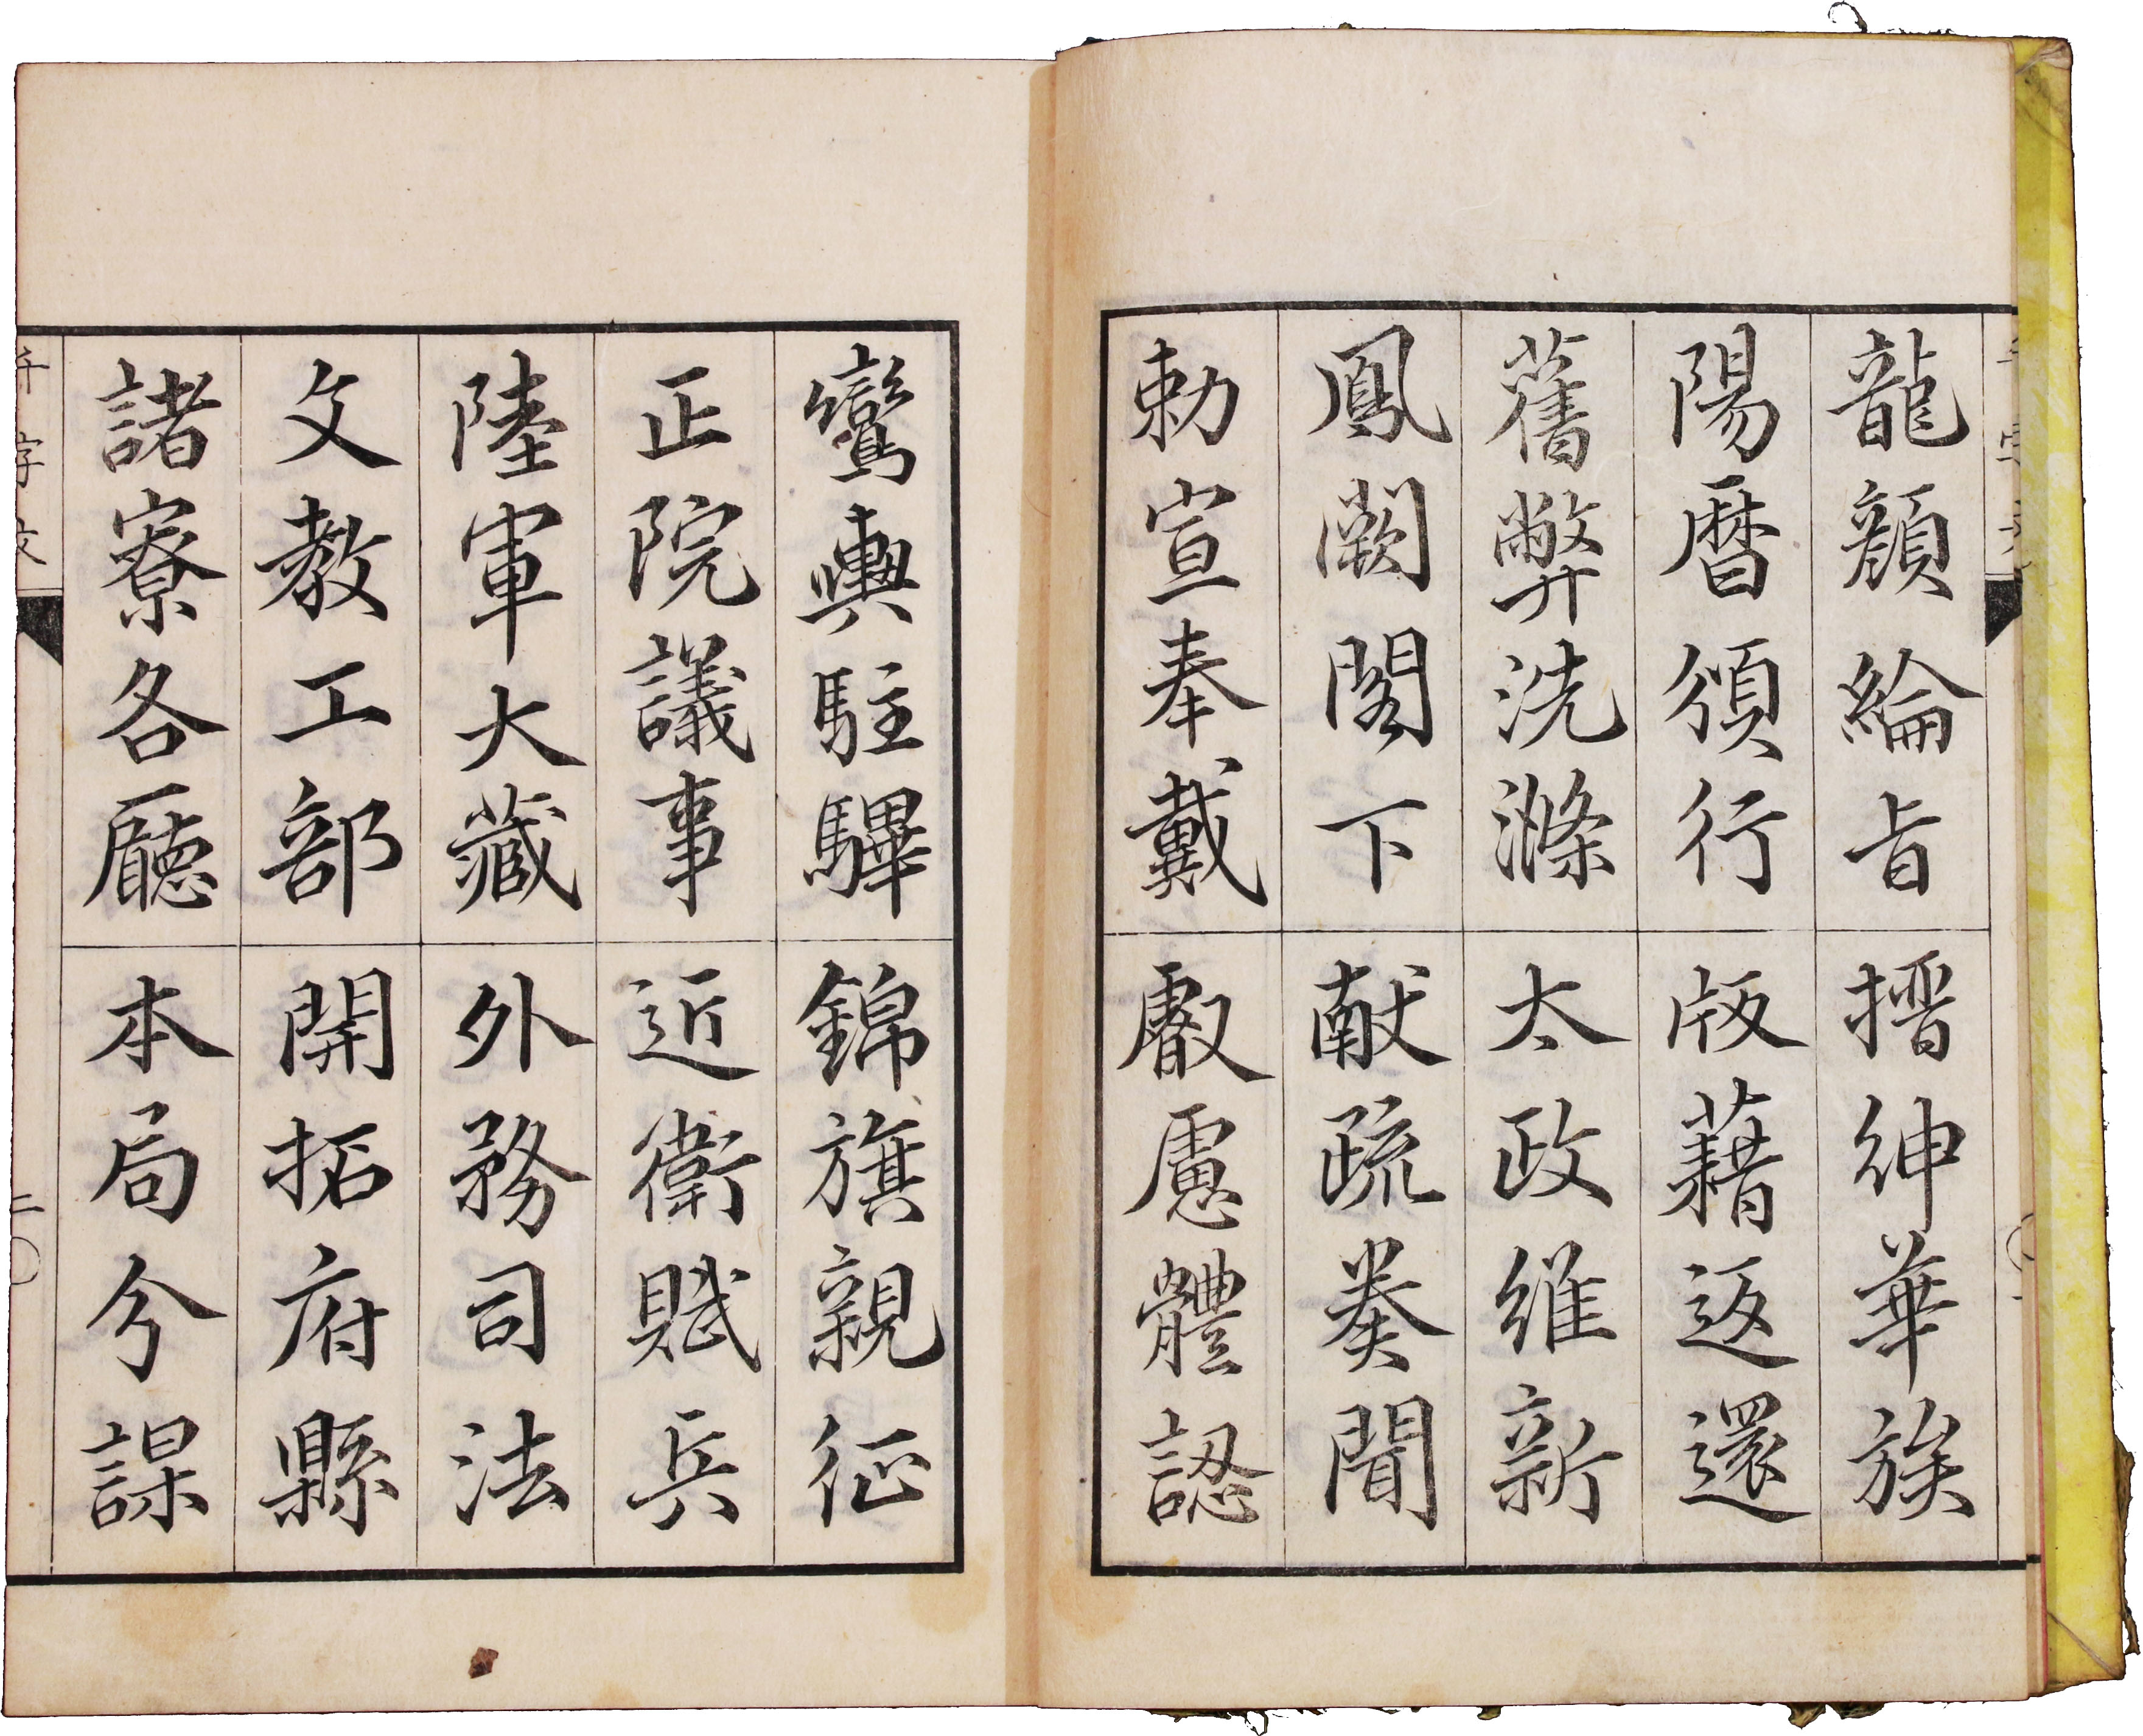 龍顔綸旨 搢紳華族
陽暦頒行 版藉返還
舊弊洗滌 太政維新
鳳闕閣下 献疏奏聞
勅宣奉戴 叡慮體認
鸞輿駐驆 錦旗親征
正院議事 近衛賦兵
陸軍大藏 外務司法
文教工部 開拓府縣
諸寮各廳 本局分課
字文 二